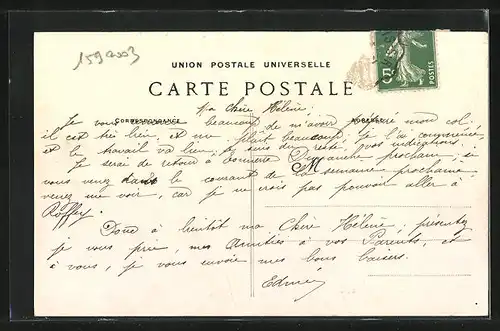 159203
UNION POSTALE UNIVERSELLE
CARTE POSTALE
CORRESPONDANCE
ADRESSE
POSTES
Ma Chère Hélène,
Je vous remercie beaucoup de m'avoir procuré mon col
il est très bien, et me plaît beaucoup. Je l'ai commencé,
et le travail va bien. Je suis du reste, vos indications.
Je serai de retour à Dimanche prochain, si
vous venez dans le courant de la semaine prochaine,
venez me voir, car je ne crois pas pouvoir aller à
Roffey.
Donc à bientôt ma Chère Hélène, présentez
je vous prie, mes Amitiés à vos Parents, et
à vous, je vous envoie mes bons baisers.
Edmée